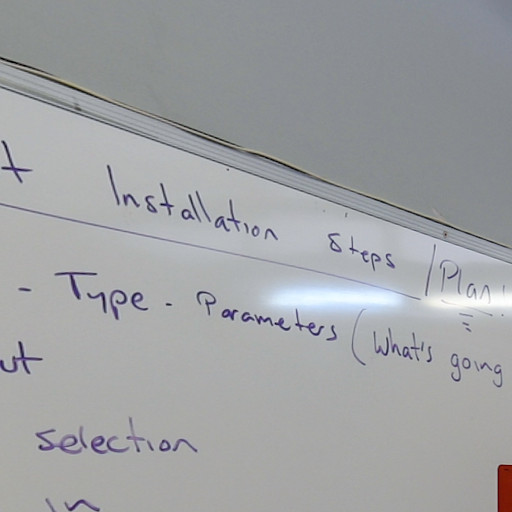 t Installation Steps / Plan
- Type - Parameters (What's going
ut
selection
in